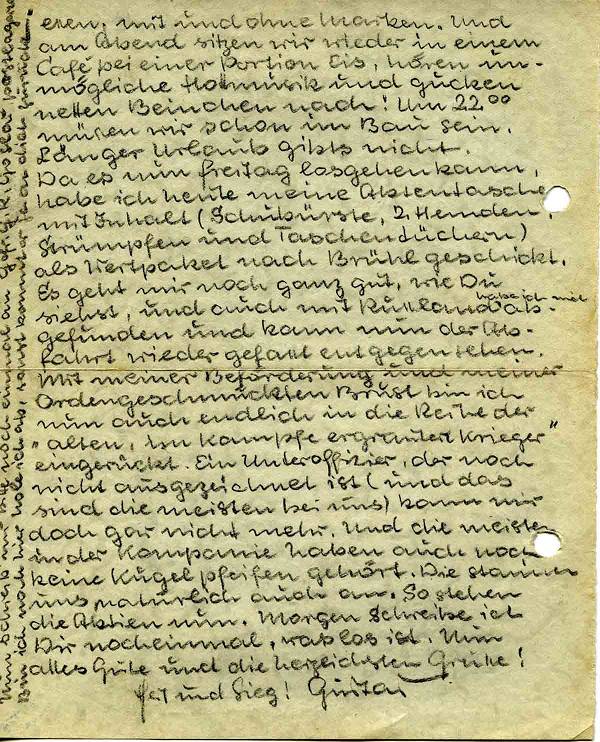 eren, mit und ohne Marken. Und
am Abend sitzen wir wieder in einem
Café bei einer Portion Eis, hören un-
mögliche Hotmusik und gucken
netten Beinchen nach! Um 22⁰⁰
müssen wir schon im Bau sein.
Länger Urlaub gibts nicht.
Da es nun freitag losgehen kann,
habe ich heute meine Aktentasche
mit Inhalt (Schuhbürste, 2 Hemden,
Strümpfen und Taschentüchern)
als Wertpaket nach Brühl geschickt.
Es geht mir noch ganz gut, wie Du
siehst, und auch mit Rußland habe ich mich ab-
gefunden und kann nun der Ab-
fahrt wieder gefaßt entgegensehen.
Mit meiner Beförderung und meiner
Ordengeschmückten Brust bin ich
nun auch endlich in die Reihe der
"alten, im Kampfe ergrauten Krieger"
eingerückt. Ein Unteroffizier, der noch
nicht ausgezeichnet ist (und das
sind die meisten bei uns) kann mir
doch gar nicht mehr. Und die meisten
in der Kompanie haben auch noch
keine Kugel pfeifen gehört. Die staunen
uns natürlich auch an. So stehen
die Aktien nun. Morgen schreibe ich
Dir nocheinmal, was los ist. Nun
alles Gute und die herzlichsten Grüße!
Heil und Sieg! Gustav
Nun schreib mir bitte noch einmal an postlagernd
Bin ich noch hier hole ich ab, sonst kommt er ja an dich zurück.